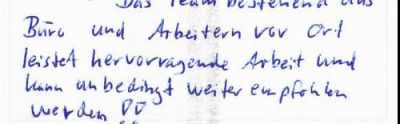 Das Team bestehend aus
Büro und Arbeitern vor Ort
leistet hervorragende Arbeit und
kann unbedingt weiter empfohlen
werden !!